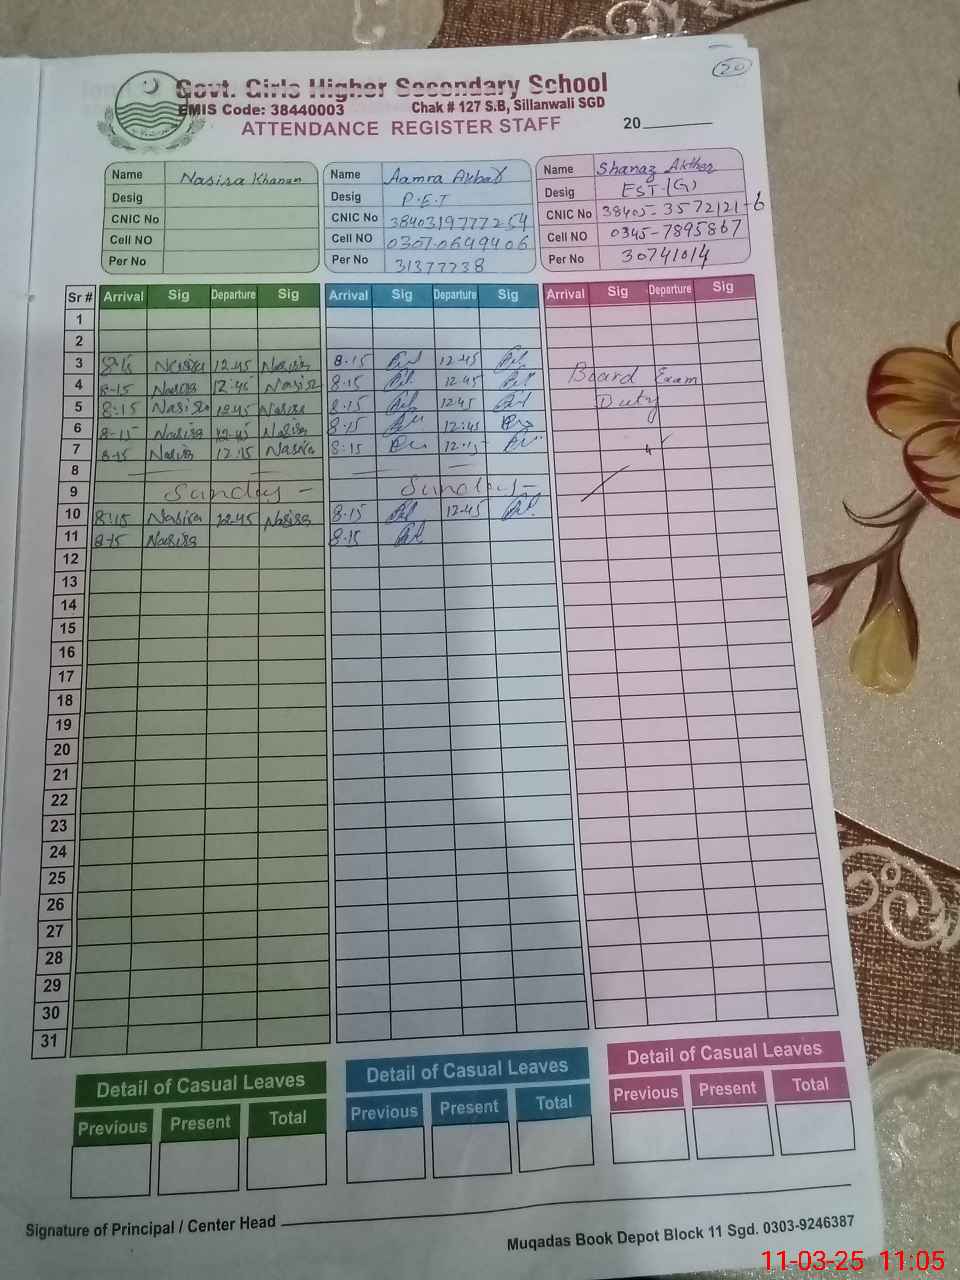 20
Govt. Girls Higher Secondary School
EMIS Code: 38440003 Chak # 127 S.B, Sillanwali SGD
ATTENDANCE REGISTER STAFF 20
Name Nasira Khanam Name Aamra Akbar Name Shanaz Akthar
Desig Desig P.E.T Desig EST (G)
CNIC No CNIC No 3840319777254 CNIC No 38405-3572121-6
Cell NO Cell NO 0307-0649406 Cell NO 0345-7895867
Per No Per No 31377738 Per No 30741014
Sr # Arrival Sig Departure Sig Arrival Sig Departure Sig Arrival Sig Departure Sig
1
2
3 8-15 Nasira 12.45 Nasira 8.15 12.45
4 8-15 Nasira 12.45 Nasira 8.15 12.45 Board Exam
5 8:15 Nasira 12.45 Nasira 8.15 12.45 Duty
6 8-15 Nasira 12.45 Nasira 8.15 12:45
7 8-15 Nasira 12.15 Nasira 8:15 12.15
8
9 Sunday Sunday
10 8:15 Nasira 12.45 Nasira 8.15 12.45
11 8-15 Nasira 8.15
12
13
14
15
16
17
18
19
20
21
22
23
24
25
26
27
28
29
30
31
Detail of Casual Leaves Detail of Casual Leaves Detail of Casual Leaves
Previous Present Total Previous Present Total Previous Present Total
Signature of Principal / Center Head
Muqadas Book Depot Block 11 Sgd. 0303-9246387
11-03-25 11:05